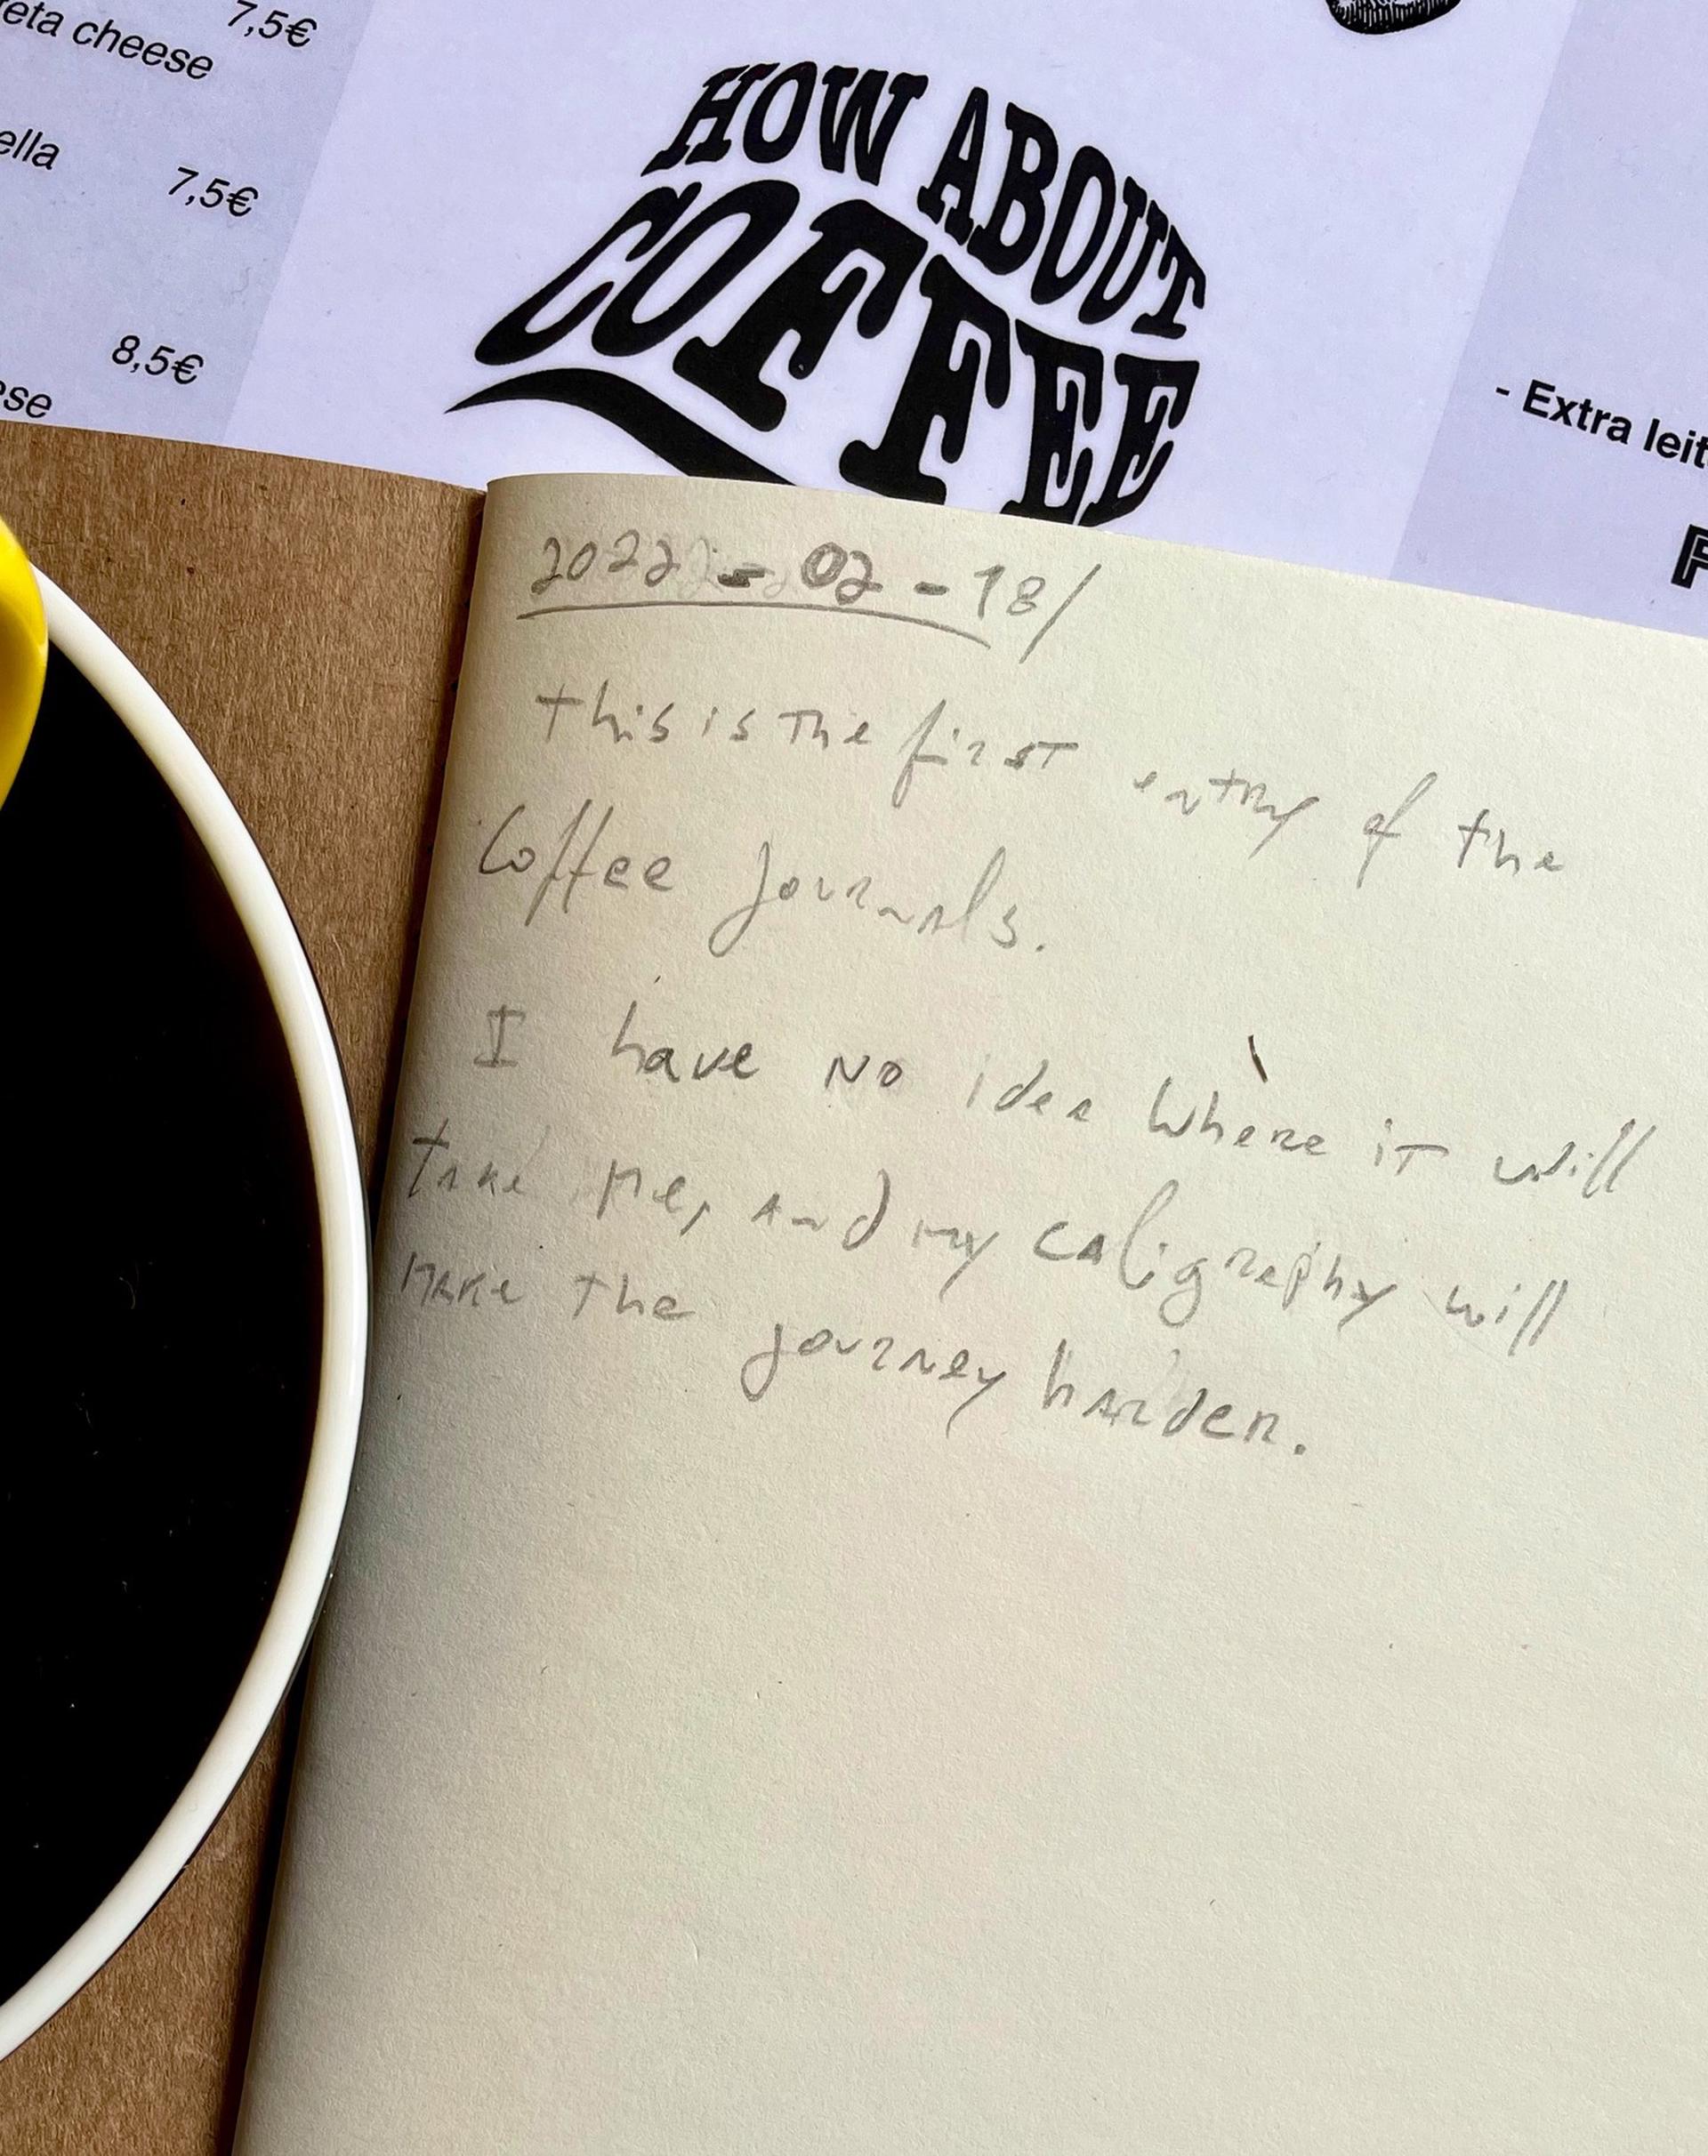 7,5€
eta cheese
ella
7,5€
8,5€
ese
HOW ABOUT
COFFEE
- Extra leit
2022 - 02 - 18/
This is the first entry of the
Coffee Journals.
I have no idea where it will
take me, and my caligraphy will
make the journey harder.